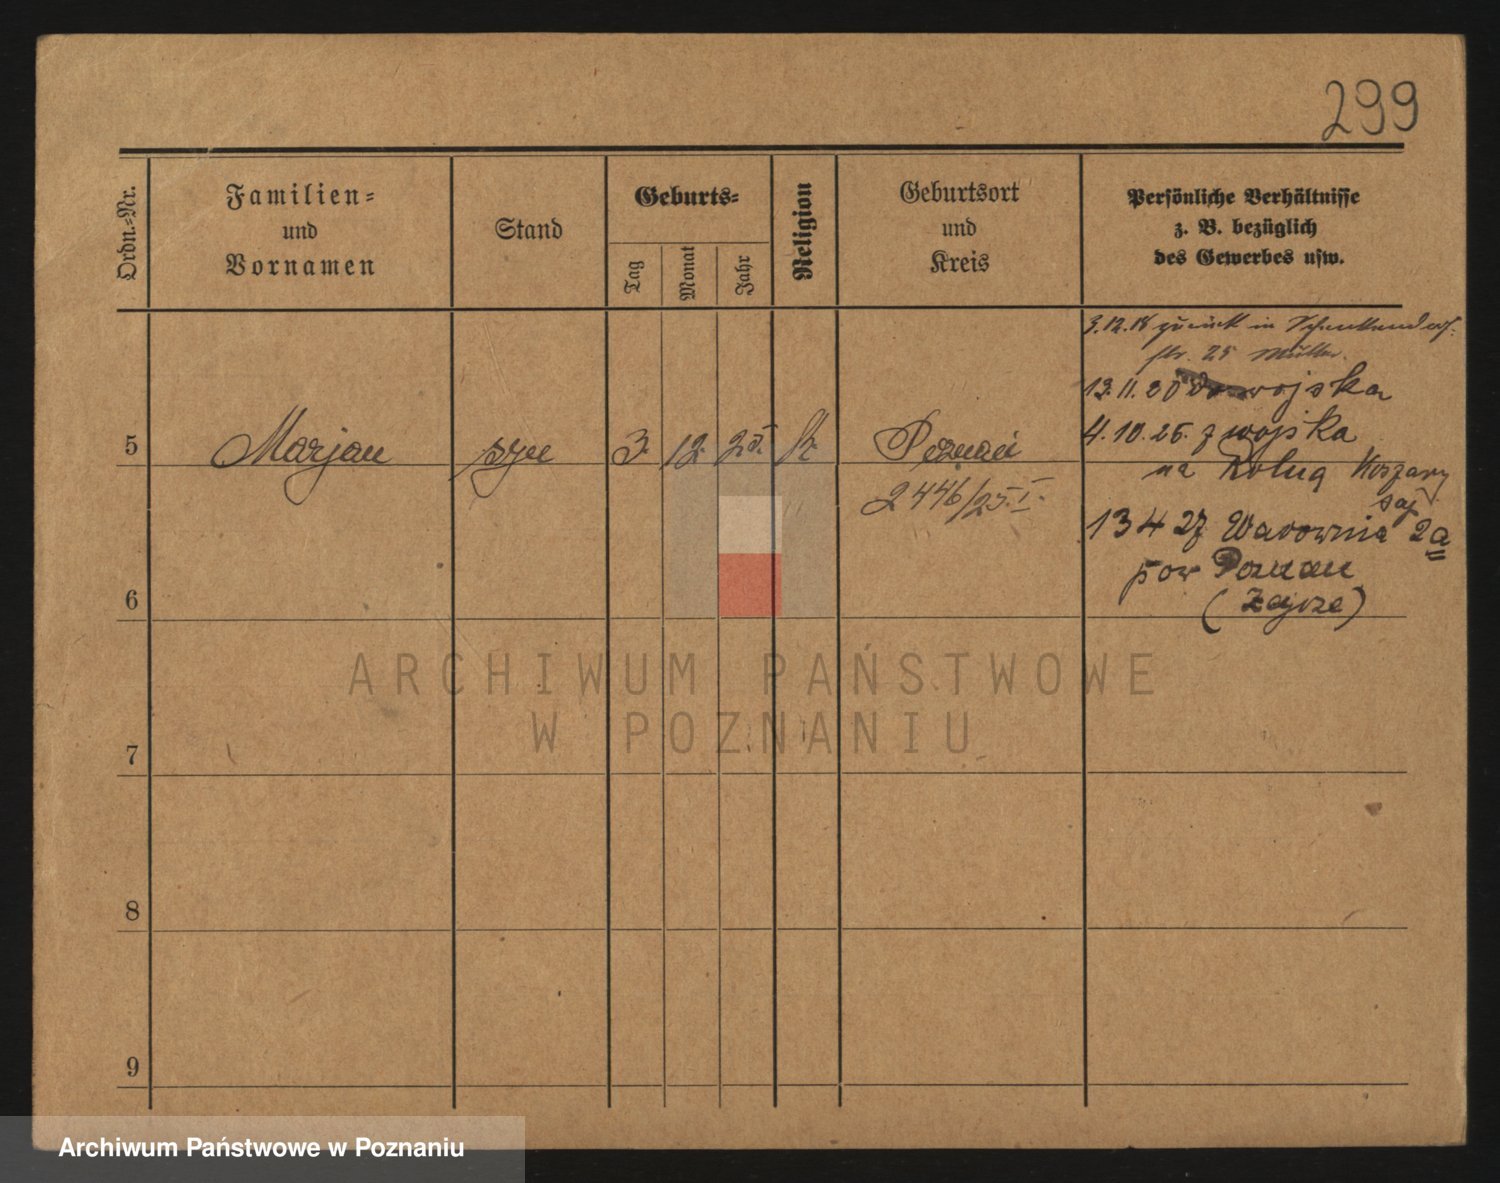 299
Ordn.-Nr.
Familien-
und
Vornamen
Stand
Geburts-
Tag
Monat
Jahr
Religion
Geburtsort
und
Kreis
Persönliche Verhältnisse
z. B. bezüglich
des Gewerbes usw.
3.12.18 zurück in
str. 25 Müller.
13.11.20 do wojska
4.10.26. z wojska
na Koszary
5 Marjan syn 3. 12. 25. k Poznań
2446/25. I.
13 4 27 Warownia 2a
pow Poznań
6
ARCHIWUM PAŃSTWOWE
W POZNANIU
7
8
9
Archiwum Państwowe w Poznaniu